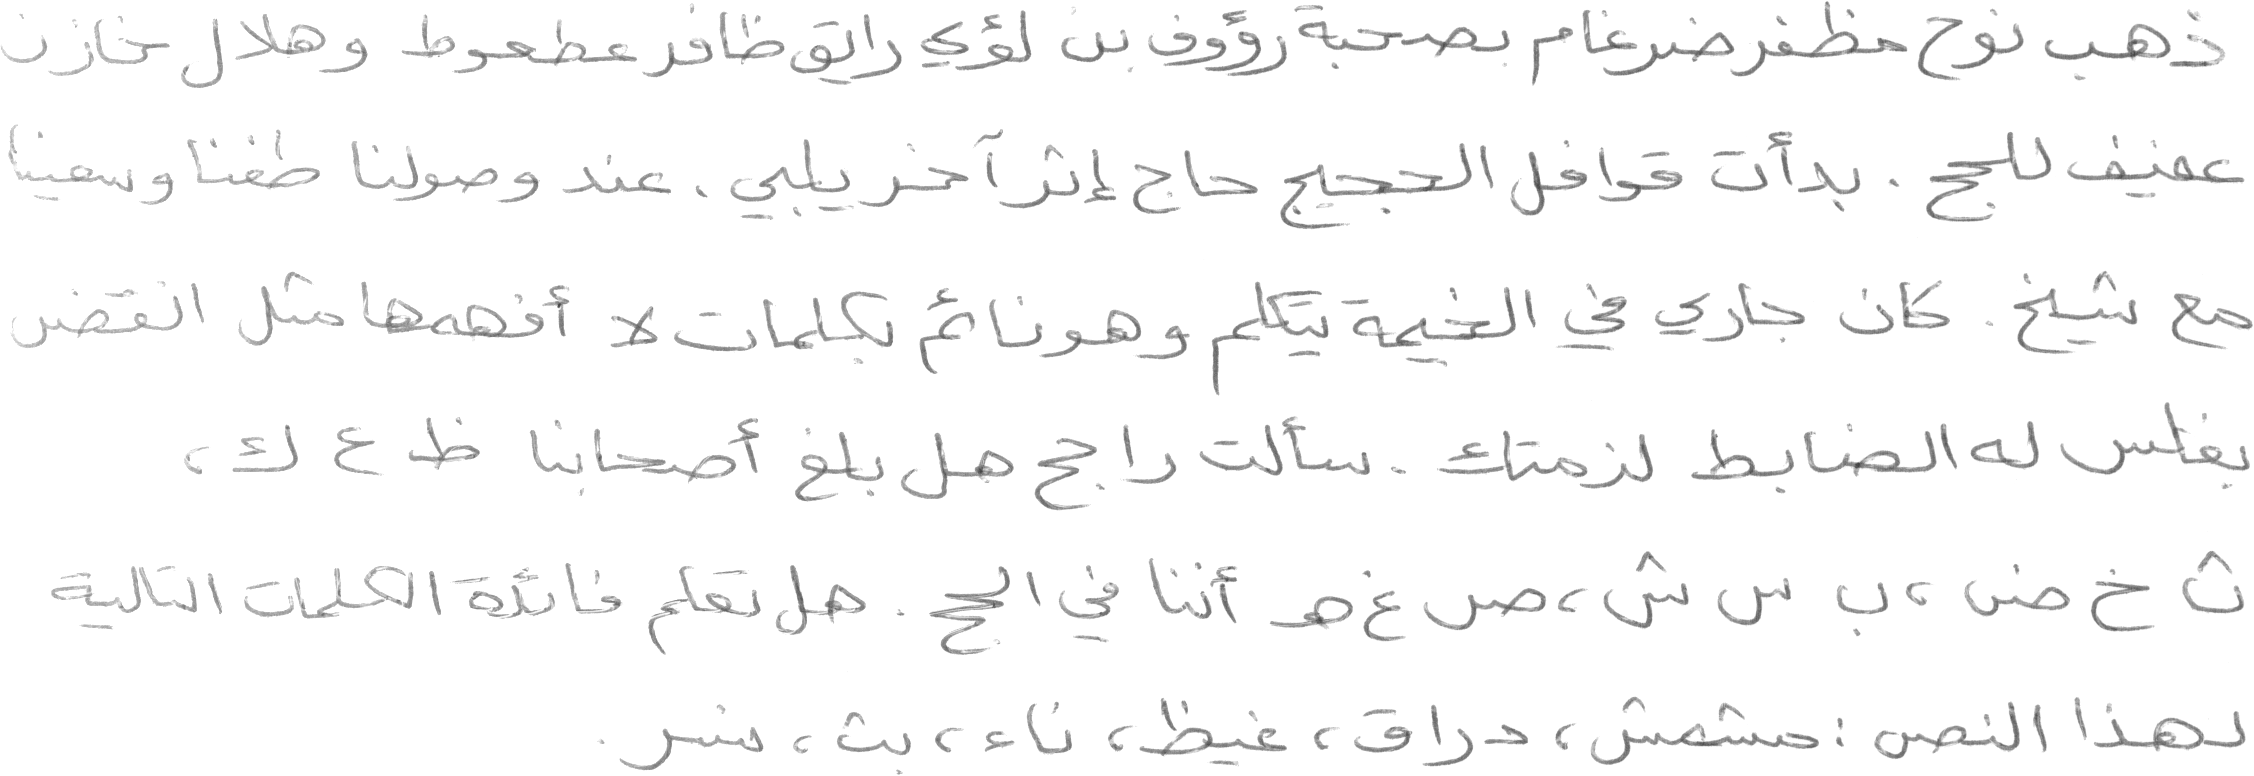 ذهب نوح مظفر ضرغام بصحبة رؤوف بن لؤي رايق ظافر عطعوط وهلال خازن
عفيف للحج . بدأت قوافل الحجيج حاج إثر آخر يلبي . عند وصولنا طفنا وسعينا
مع شيخ . كان جاري في الخيمة يتكلم وهو نائم بكلمات لا أفهمها مثل انقض
بغلس له الضابط لزمتك . سألت راجح هل بلغ أصحابنا ظ ع ك ،
ث خ ض ، ب س ش ، ص غ هـ أننا في الحج . هل تعلم فائدة الكلمات التالية
لهذا النص : مشمش ، دراق ، غيظ ، ناء ، بث ، منسر .